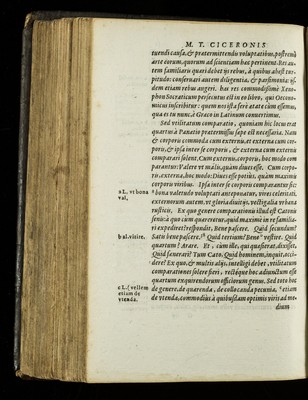 M. T. CICERONIS
tuendi causa, & pratermittendo voluptatibus, postremò
arte eorum, quorum ad scientiam hæc pertinent. Res au-
tem familiaris quæri debet ijs rebus, à quibus abest tur-
pitudo: conseruari autem diligentia, & parsimonia: ijs-
dem etiam rebus augeri. has res commodissimè Xeno-
phon Socraticus persecutus est in eo libro, qui Oecono-
micus inscribitur: quem nos ista ferè ætate cùm essemus,
qua es tu nunc, è Græco in Latinum conuertimus.
Sed vtilitatum comparatio, quoniam hic locus erat
quartus à Panætio prætermissus sæpe est necessaria. Nam
& corporis commoda cum externis, et externa cum cor-
poris, & ipsa inter se corporis, & externa cum externis
comparari solent. Cum externis corporis, hoc modo com
parantur: Valere vt malis, quàm diues esse. Cum corpo-
ris externa, hoc modo: Diues esse potiùs, quàm maximis
corporis viribus. Ipsa inter se corporis comparantur sic:
a bona valetudo voluptati anteponatur, vires celeritati.
externorum autem, vt gloria diuitijs, vectigalia vrbana
rusticis. Ex quo genere comparationis illud est Catonis
senis: à quo cùm quæreretur, quid maximè in re familia-
ri expediret? respondit, Bene pascere. Quid secundum?
Satis bene pascere. b Quid tertium? Bene vestire. Quid
quartum? Arare. Et, cùm ille, qui quæsierat, dixisset,
Quid fœnerari? Tum Cato, Quid hominem, inquit, occi-
dere? Ex quo, & multis alijs, intelligi debet, vtilitatum
comparationes solere fieri, rectéque hoc adiunctum esse
quartum exquirendorum officiorum genus. Sed toto hoc
de genere, de quærenda, de collocanda pecunia, c etiam
de vtenda, commodiùs à quibusdam optimis viris ad me-
dium
a L. vt bona
val,
b al. vitire.
c L. [ vellem
etiam de
vtenda.